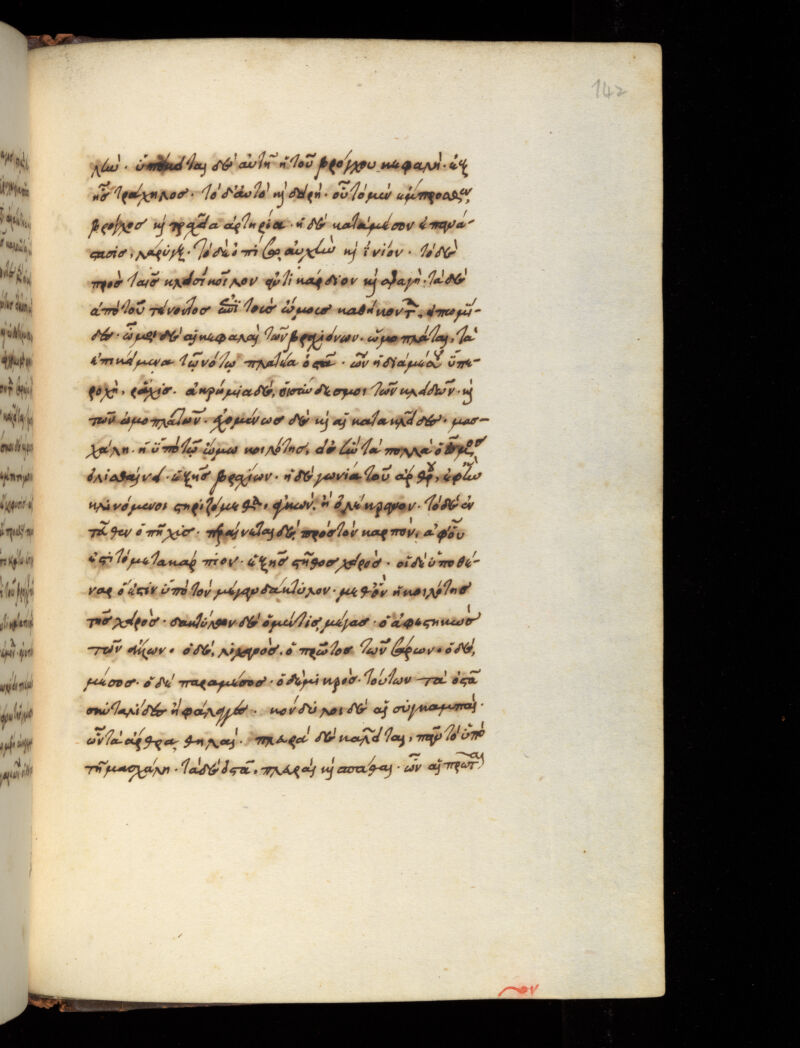 142
ὑπόκειται δὲ αὐτῇ ἡ τοῦ βρόγχου κεφαλή. ἑξ
ῆς τράχηλος. τὸ δ' αὐτὸ κ δέρη. οὗ τὸ μὲν ἔμπροσθεν,
βρόγχος κ τραχεῖα ἀρτηρία. ἡ δὲ κατὰ μέσον ἐπανά-
στασις, λάρυγξ. τὸ δὲ ὀπίσω αὐχὴν κ ἰνίον. τὸ δὲ
πρὸς ταῖς κλεισὶ κοῖλον ἀντικάρδιον κ σφαγή. τὰ δὲ
ἀπὸ τοῦ τένοντος ἐπὶ τοὺς ὤμους καθήκοντα, ἐπωμί-
δες. ὦμοι δὲ αἱ κεφαλαὶ τῶν βραχιόνων. ὠμοπλάται, τὰ
ἐπικείμενα τῷ νώτῳ πλατέα ὀστᾶ. ὧν ἡ διὰ μέσου ὑπε-
ροχὴ, ῥάχις. ἀκρώμια δὲ, οἱ σύνδεσμοι τῶν κλειδῶν. κ
τῶν ὠμοπλατῶν. κ αἱ κατακλεῖδες. μασ-
χάλη. ἡ ὑπὸ τῷ ὤμῳ κοιλότης, εἰς ἣν τὰ πολλὰ ὁ ὦμος
ὀλισθαίνει. ἑξῆς βραχίων. ἡ δὲ γωνία τοῦ ἄρθρου, ἐφ' ἣν
κλινόμενοι στηριζόμεθα, ἀγκών. ἢ ὀλέκρανον. τὸ δὲ ἐν
τεῦθεν ὁ πῆχυς. περαίνεται δὲ, πρὸς τὸν καρπὸν, ἀφ' οὗ
ἐστὶ τὸ μετακάρπιον. ἑξῆς στῆθος χειρός. οἱ δὲ ὑποθέ-
ναρ ὅ ἐστιν ὑπὸ τὸν μέγαν δάκτυλον. μεθ' ὃν ἡ κοιλότης
τῆς χειρός. δακτύλων δὲ ὁ μέν τις μέγας. ὁ ἀφεστηκὼς
τῶν ἄλλων. ὁ δὲ, λιχανὸς. ὁ πρῶτος τῶν τεσσάρων. ὁ δὲ,
μέσος. ὁ δὲ παράμεσος. ὁ δὲ μικρὸς. τούτων τὰ ὀστᾶ
σκυταλίδες ἢ φάλαγγες. κόνδυλοι δὲ αἱ συγκαμπαί.
ὧν τὰ ἄρθρα, θηλαί. πλευρὰ δὲ καλεῖται, πᾶν τὸ ὑπὸ
τῇ μασχάλῃ. τὰ δὲ ὀστᾶ, πλευραὶ κ σπάθαι. ὧν αἱ πρῶται